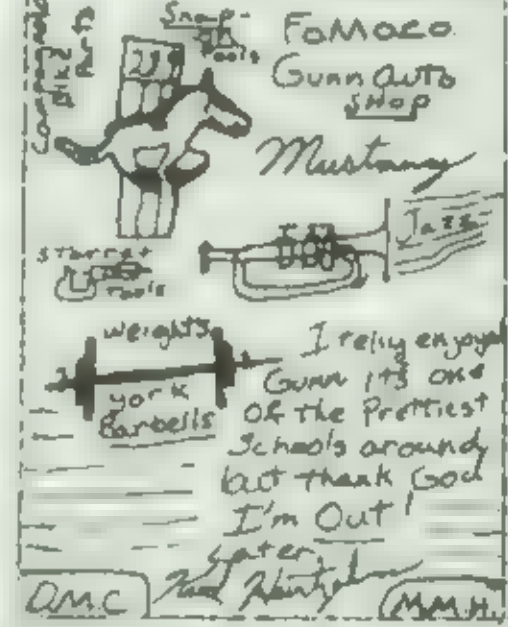 Campagnolo
Bike
Parts
Snap-
on
Tools
289
FoMoCo
Gunn Auto
Shop
Mustang
Jazz
Starret
Tools
Weights
York
Barbells
I relly enjoyed
Gunn it's one
of the Prettiest
Schools around
but thank God
I'm Out!
Later,
D.M.C
M.M.H.